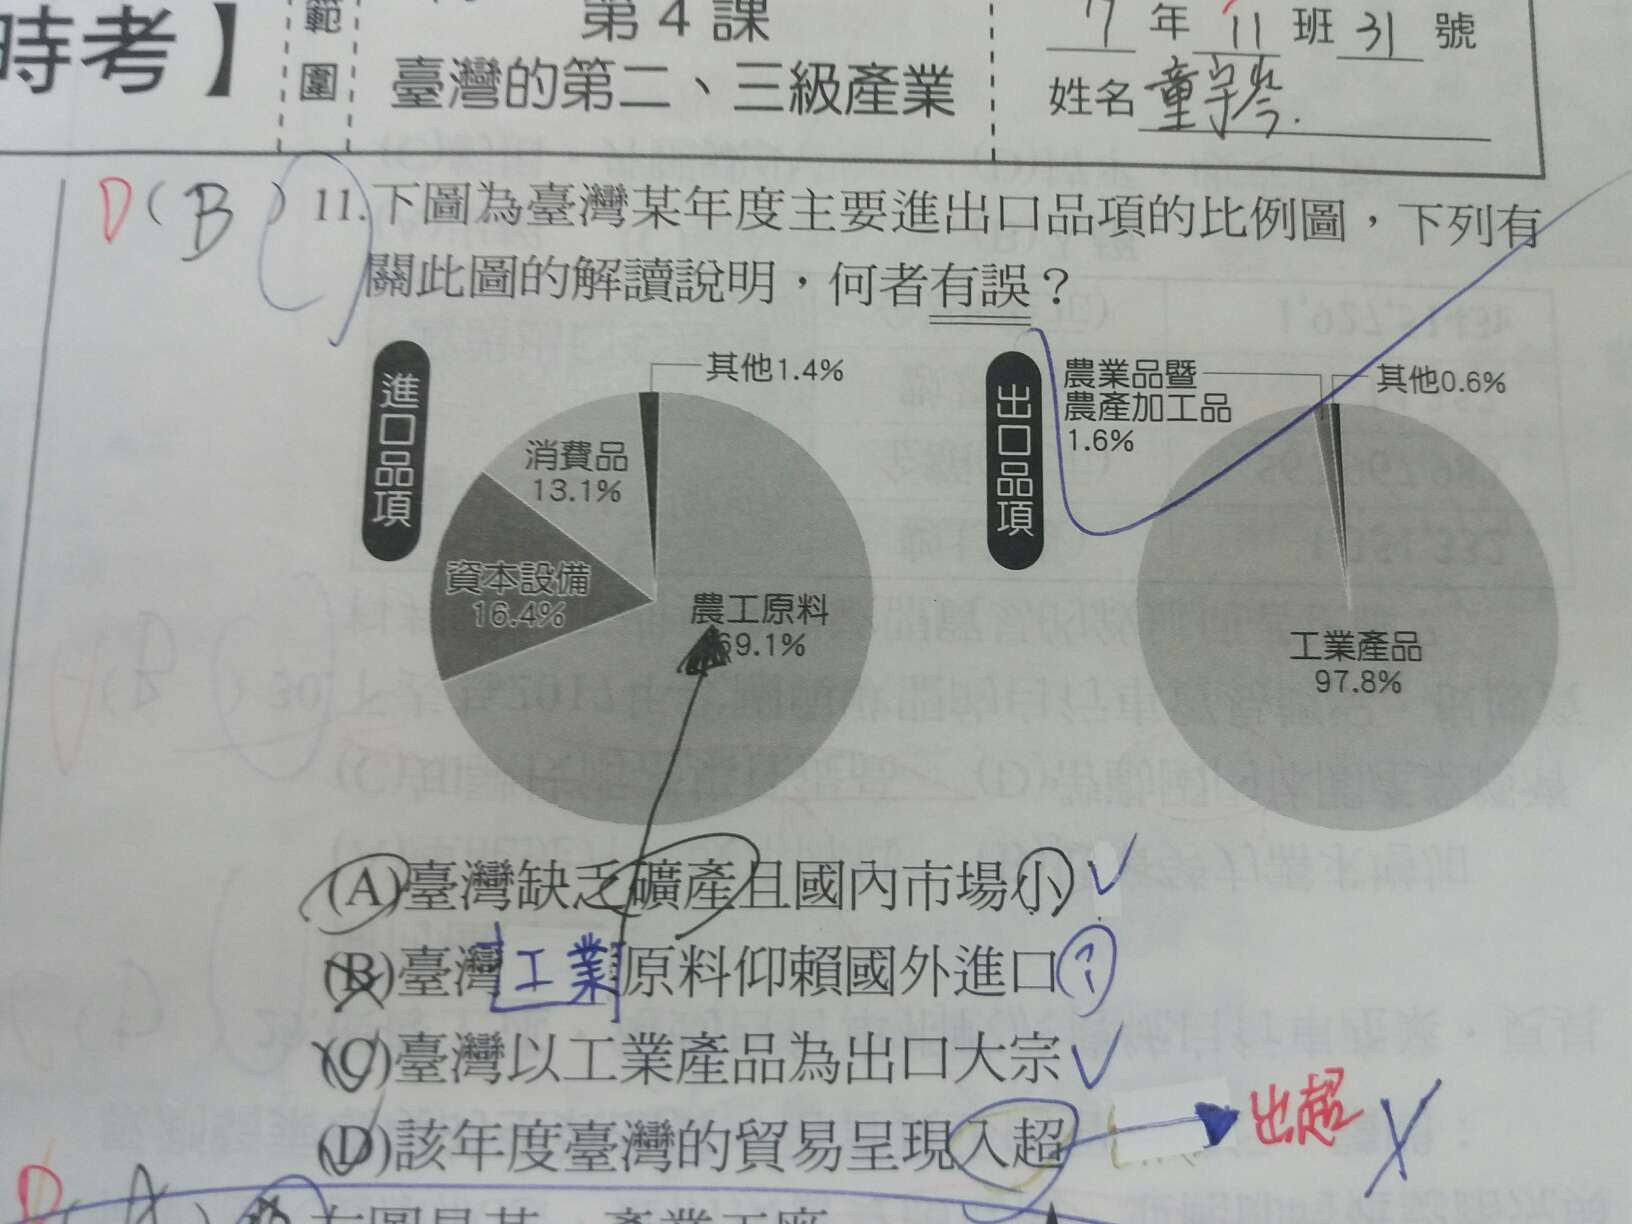 時考】
範
圍
第4課
臺灣的第二、三級產業
7年11班31號
姓名童
D(B)11.下圖為臺灣某年度主要進出口品項的比例圖，下列有
關此圖的解讀說明，何者有誤？
進口品項
其他1.4%
消費品
13.1%
資本設備
16.4%
農工原料
69.1%
出口品項
農業品暨
農產加工品
1.6%
其他0.6%
工業產品
97.8%
(A)臺灣缺乏礦產且國內市場小
(B)臺灣工業原料仰賴國外進口
(C)臺灣以工業產品為出口大宗
(D)該年度臺灣的貿易呈現入超 出超